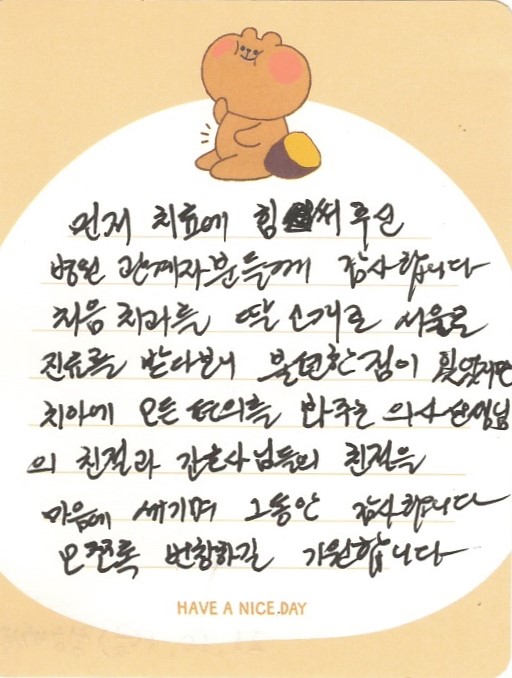 먼저 치료에 힘 써주신
병원 관계자분들께 감사합니다
처음 치과를 딸 소개로 서울로
진료를 받다보니 불편한 점이 있었지만
치아에 모든 편의를 봐주는 의사선생님
의 친절과 간호사님들의 친절을
마음에 새기며 그동안 감사합니다
모쪼록 번창하길 기원합니다
HAVE A NICE DAY